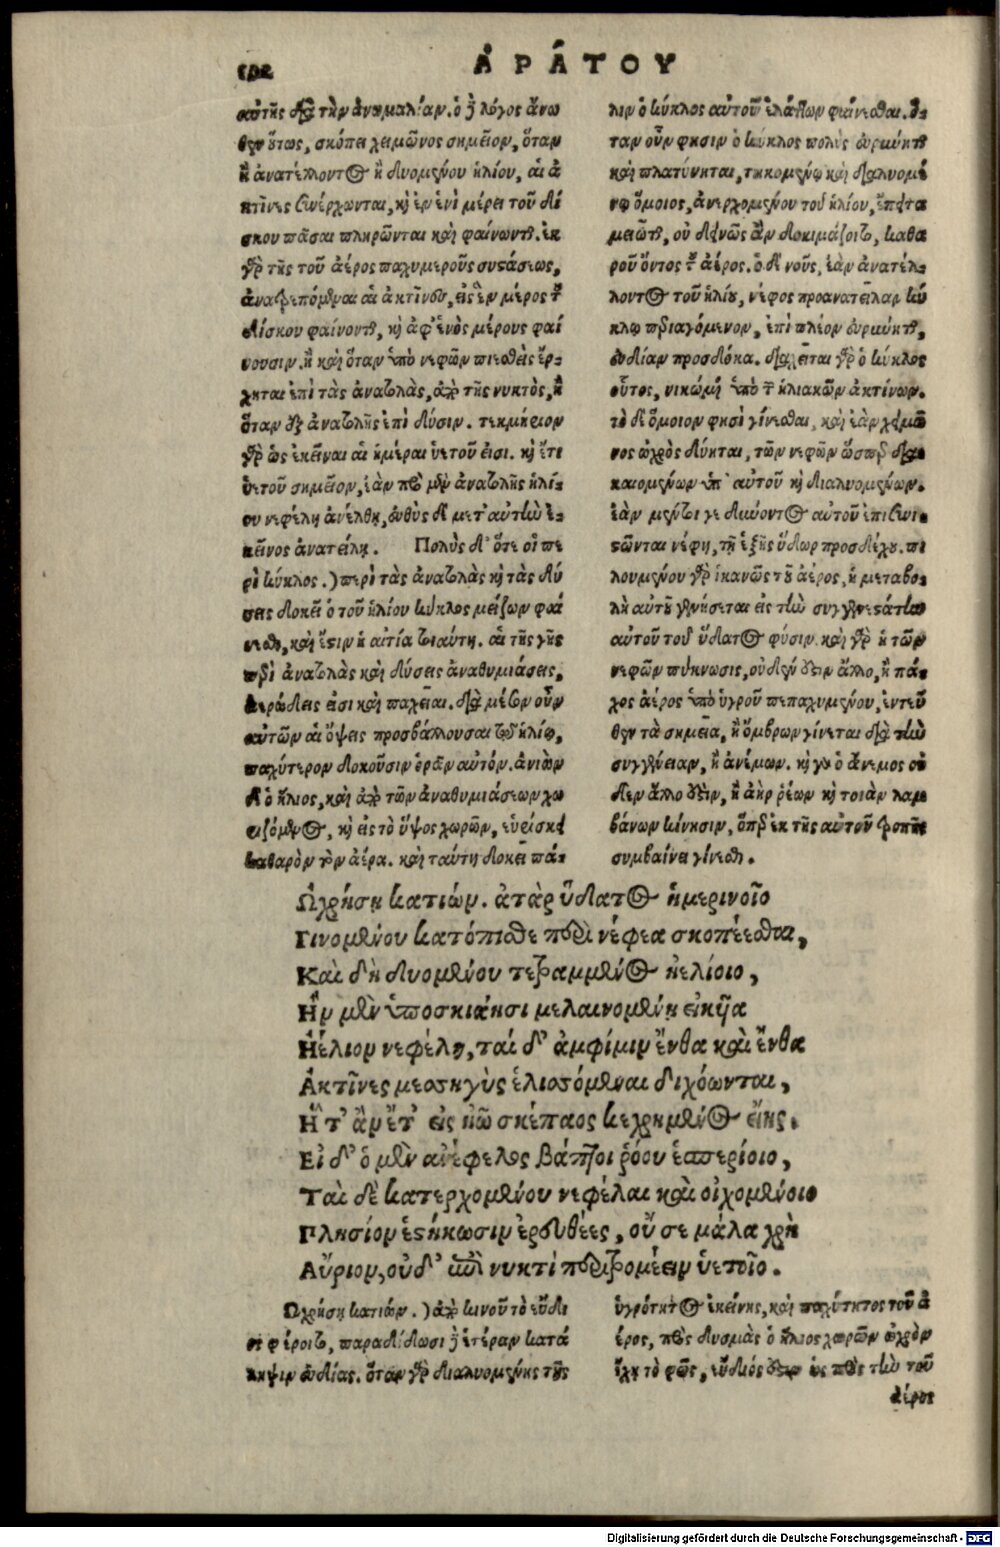 ΑΡΑΤΟΥ
αὐτῆς διὰ τὴν ἀνωμαλίαν. ὁ δὲ λόγος ἄνω
θεν οὕτως, σκόπει χειμῶνος σημεῖον, ὅταν
ἢ ἀνατέλλοντος ἢ δυομένου ἡλίου, αἱ ἀ
κτῖνες συνέρχωνται, καὶ ἐν ἑνὶ μέρει τοῦ δί
σκου πᾶσαι πληρῶνται καὶ φαίνωνται. ἐκ
γὰρ τῆς τοῦ ἀέρος παχυμεροῦς συστάσεως,
ἀνατρεπόμεναι αἱ ἀκτῖνες, εἰς ἓν μέρος τοῦ
δίσκου φαίνονται, καὶ ἀφ' ἑνὸς μέρους φαί
νουσιν. ἢ καὶ ὅταν ὑπὸ νεφῶν πιεσθεὶς ἔρ-
χηται ἐπὶ τὰς ἀνατολὰς, ἀπὸ τῆς νυκτὸς, ἢ
ὅταν ἐξ ἀνατολῆς ἐπὶ δύσιν. τεκμήριον
γὰρ ὡς ἐκεῖναι αἱ ἡμέραι ὑετοῦ εἰσι. καὶ ἔτι
ὑετοῦ σημεῖον, ἐὰν πρὸ μὲν ἀνατολῆς ἡλί-
ου νεφέλη ἀνέλθῃ, εὐθὺς δὲ μετ' αὐτὴν ἐ-
κεῖνος ἀνατείλῃ. Πολὺς δ' ὅτε οἱ πε
ρὶ κύκλος.) περὶ τὰς ἀνατολὰς καὶ τὰς δύ
σεις δοκεῖ ὁ τοῦ ἡλίου κύκλος μείζων φαί
νεσθαι, καὶ ἔστιν ἡ αἰτία τοιαύτη. αἱ τῆς γῆς
περὶ ἀνατολὰς καὶ δύσεις ἀναθυμιάσεις,
ἀερώδεις εἰσι καὶ παχεῖαι. διὰ μέσον οὖν
αὐτῶν αἱ ὄψεις προσβάλλουσαι τῷ ἡλίῳ,
παχύτερον δοκοῦσιν ὁρᾶν αὐτόν. ἀνιὼν
δὲ ὁ ἥλιος, καὶ ἀπὸ τῶν ἀναθυμιάσεων χω
ριζόμενος, καὶ εἰς τὸ ὕψος χωρῶν, εὑρίσκει
καθαρὸν τὸν ἀέρα. καὶ ταύτῃ δοκεῖ πά-
λιν ὁ κύκλος αὐτοῦ ἐλάττων φαίνεσθαι. ὅ-
ταν οὖν φησιν ὁ κύκλος πολὺς εὐρύνηται
καὶ πλατύνηται, τηκομένῳ καὶ διαλυομέ
νῳ ὅμοιος, ἀνερχομένου τοῦ ἡλίου, ἔπειτα
μειῶται, οὐ δεινῶς ἂν δοκιμάζοιτο, καθα
ροῦ ὄντος τοῦ ἀέρος. ὁ δὲ νοῦς, ἐὰν ἀνατέλ-
λοντος τοῦ ἡλίου, νέφος προανατεῖλαν κύ
κλῳ περιαγόμενον, ἐπὶ πλέον εὐρύνηται,
εὐδίαν προσδόκα. διαλεῖται γὰρ ὁ κύκλος
οὗτος, νικώμενος ὑπὸ τῶν ἡλιακῶν ἀκτίνων.
τὸ δὲ ὅμοιον φησὶ γίνεσθαι, καὶ ἐὰν χειμῶ
νος ὠχρὸς δύηται, τῶν νεφῶν ὥσπερ δια
καιομένων ὑπ' αὐτοῦ καὶ διαλυομένων.
ἐὰν μέντοι γε δύνοντος αὐτοῦ ἐπισυνι-
στῶνται νέφη, τῇ ἑξῆς ὕδωρ προσδέχου. πι
λουμένου γὰρ ἱκανῶς τοῦ ἀέρος, ἡ μεταβο-
λὴ αὐτοῦ γενήσεται εἰς τὴν συγγενεστάτην
αὐτοῦ τοῦ ὕδατος φύσιν. καὶ γὰρ ἡ τῶν
νεφῶν πύκνωσις, οὐδέν ἐστιν ἄλλο, ἢ πά-
χος ἀέρος ὑπὸ ὑγροῦ πεπαχυμένου, ἐντεῦ
θεν τὰ σημεῖα, ἢ ὄμβρων γίνεται διὰ τὴν
συγγένειαν, ἢ ἀνέμων. καὶ γὰρ ὁ ἄνεμος οὐ
δὲν ἄλλο ἐστὶν, ἢ ἀὴρ ῥέων καὶ τοιὰν λαμ
βάνων κίνησιν, ὅπερ ἐκ τῆς αὐτοῦ τροπῆς
συμβαίνει γίνεσθαι.
Ὠχρήσῃ κατιών. ἀτὰρ ὕδατος ἡμερινοῖο
Γινομένου κατόπισθε περὶ νέφεα σκοπέεσθαι,
Καὶ δὴ δυομένου τετραμμένος ἠελίοιο,
Ἢν μὲν ὑποσκιάῃσι μελαινομένῃ εἰκυῖα
Ἠέλιον νεφέλη, ταὶ δ' ἀμφίμιν ἔνθα καὶ ἔνθα
Ἀκτῖνες μεσσηγὺς ἑλισσόμεναι διχόωνται,
Ἦ τ' ἂν ἔτ' εἰς ἠῶ σκέπαος κεχρημένος εἴης.
Εἰ δ' ὁ μὲν ἀνέφελος βάπτοι ῥόου ἑσπερίοιο,
Ταὶ δὲ κατερχομένου νεφέλαι καὶ οἰχομένοιο
Πλησίον ἑστήκωσιν ἐρευθέες, οὔ σε μάλα χρὴ
Αὔριον, οὐδ' ἐπὶ νυκτὶ περιτρομέειν ὑετοῖο.
Ὠχρήσῃ κατιών.) ἀπὸ κοινοῦ τὸ εὔδι
ος φέροιτο, παραδίδωσι δὲ ἑτέραν κατά
ληψιν εὐδίας. ὅταν γὰρ διαλυομένης τῆς
ὑγρότητος ἐκείνης, καὶ παχύτητος τοῦ ἀ
έρος, πρὸς δυσμὰς ὁ ἥλιος χωρῶν ὠχρὸν
ἔχῃ τὸ φῶς, εὔδιός ἐστιν ὡς πρὸς τὴν τοῦ
ἀέρος
Digitalisierung gefördert durch die Deutsche Forschungsgemeinschaft - DFG